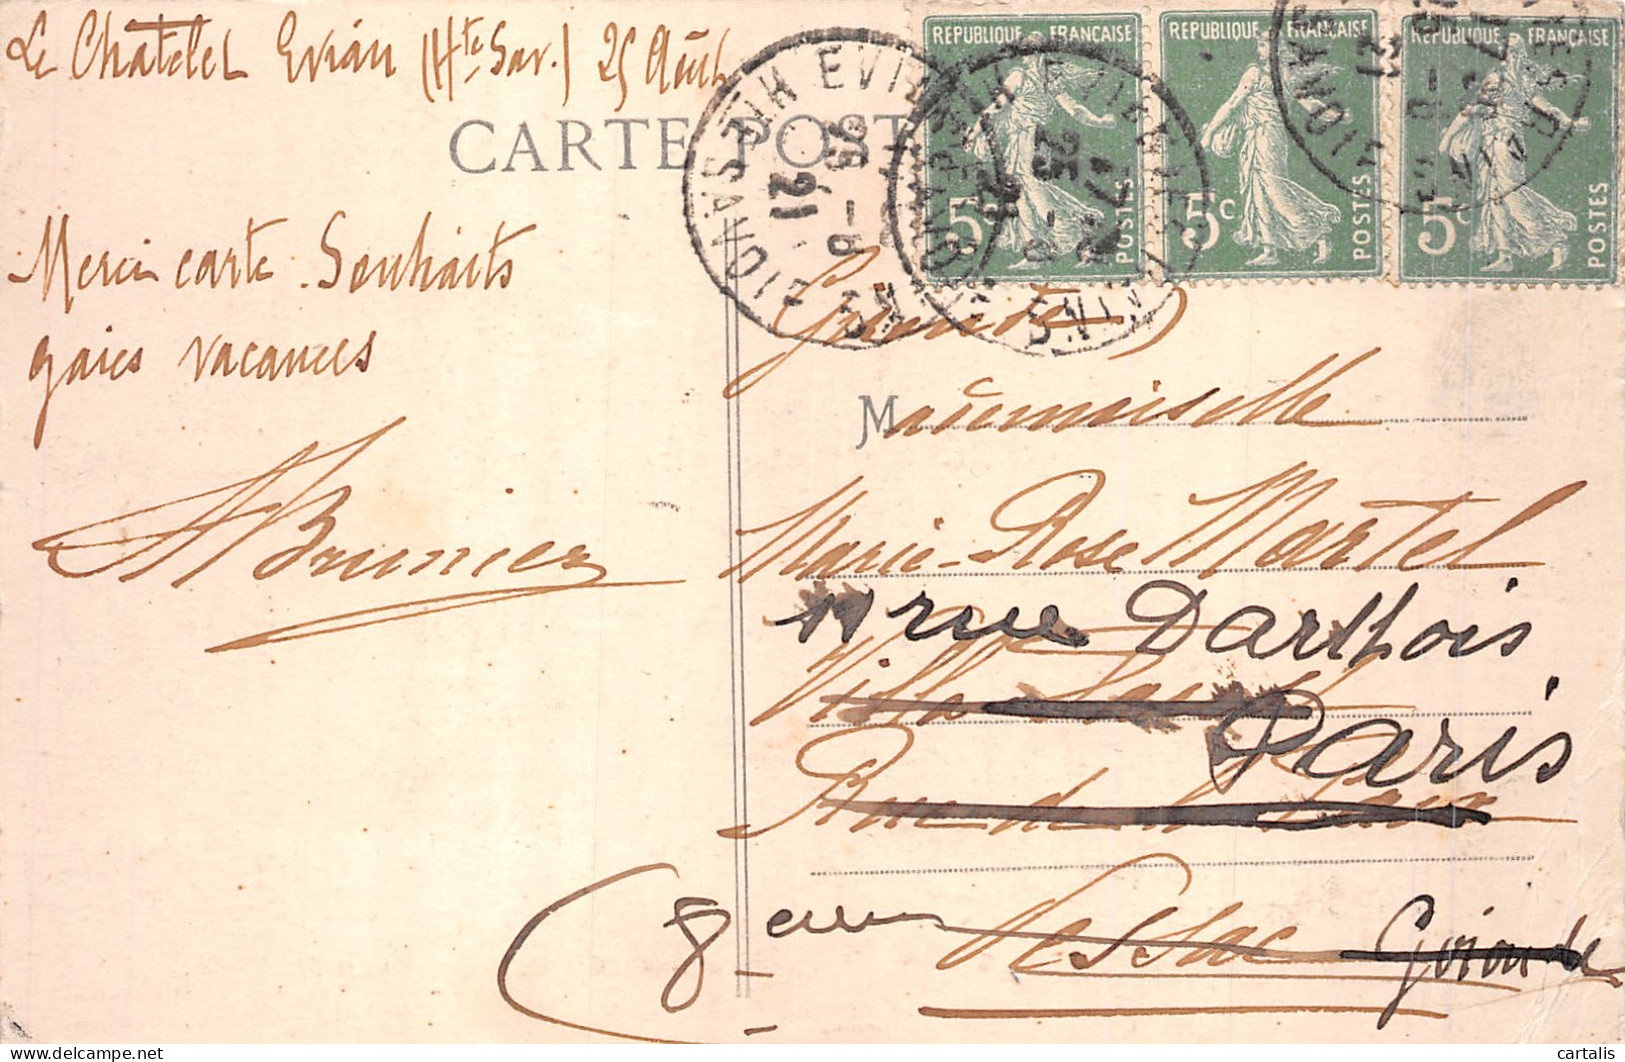 Le Châtelet Evian (Hte Sav.) 25 Août
CARTE POST
Merci carte. Souhaits
gaies vacances
A Brunier
REPUBLIQUE FRANÇAISE
5c POSTES
REPUBLIQUE FRANÇAISE
5c POSTES
REPUBLIQUE FRANÇAISE
5c POSTES
EVIAN
25 - 8
21
Gironde
Mademoiselle
Marie-Rose Martel
11 rue Darthois
Villa
Paris
Rue de la Paix
(8eme
Pessac Gironde
cartalis